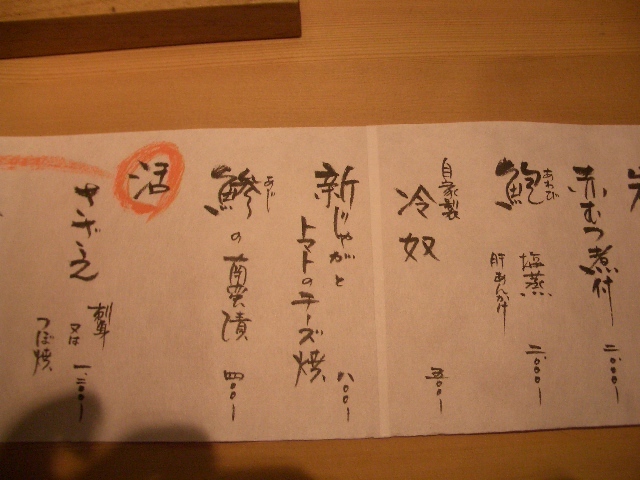 赤むつ煮付 二、〇〇〇ー
鮑 あわび 塩蒸 二、〇〇〇ー
肝あんかけ
自家製
冷奴 五〇〇ー
新じゃがと
トマトのチーズ焼 八〇〇ー
鯵 あじ の南蛮漬 四〇〇ー
活
さざえ 刺身
又は 一、二〇〇ー
つぼ焼